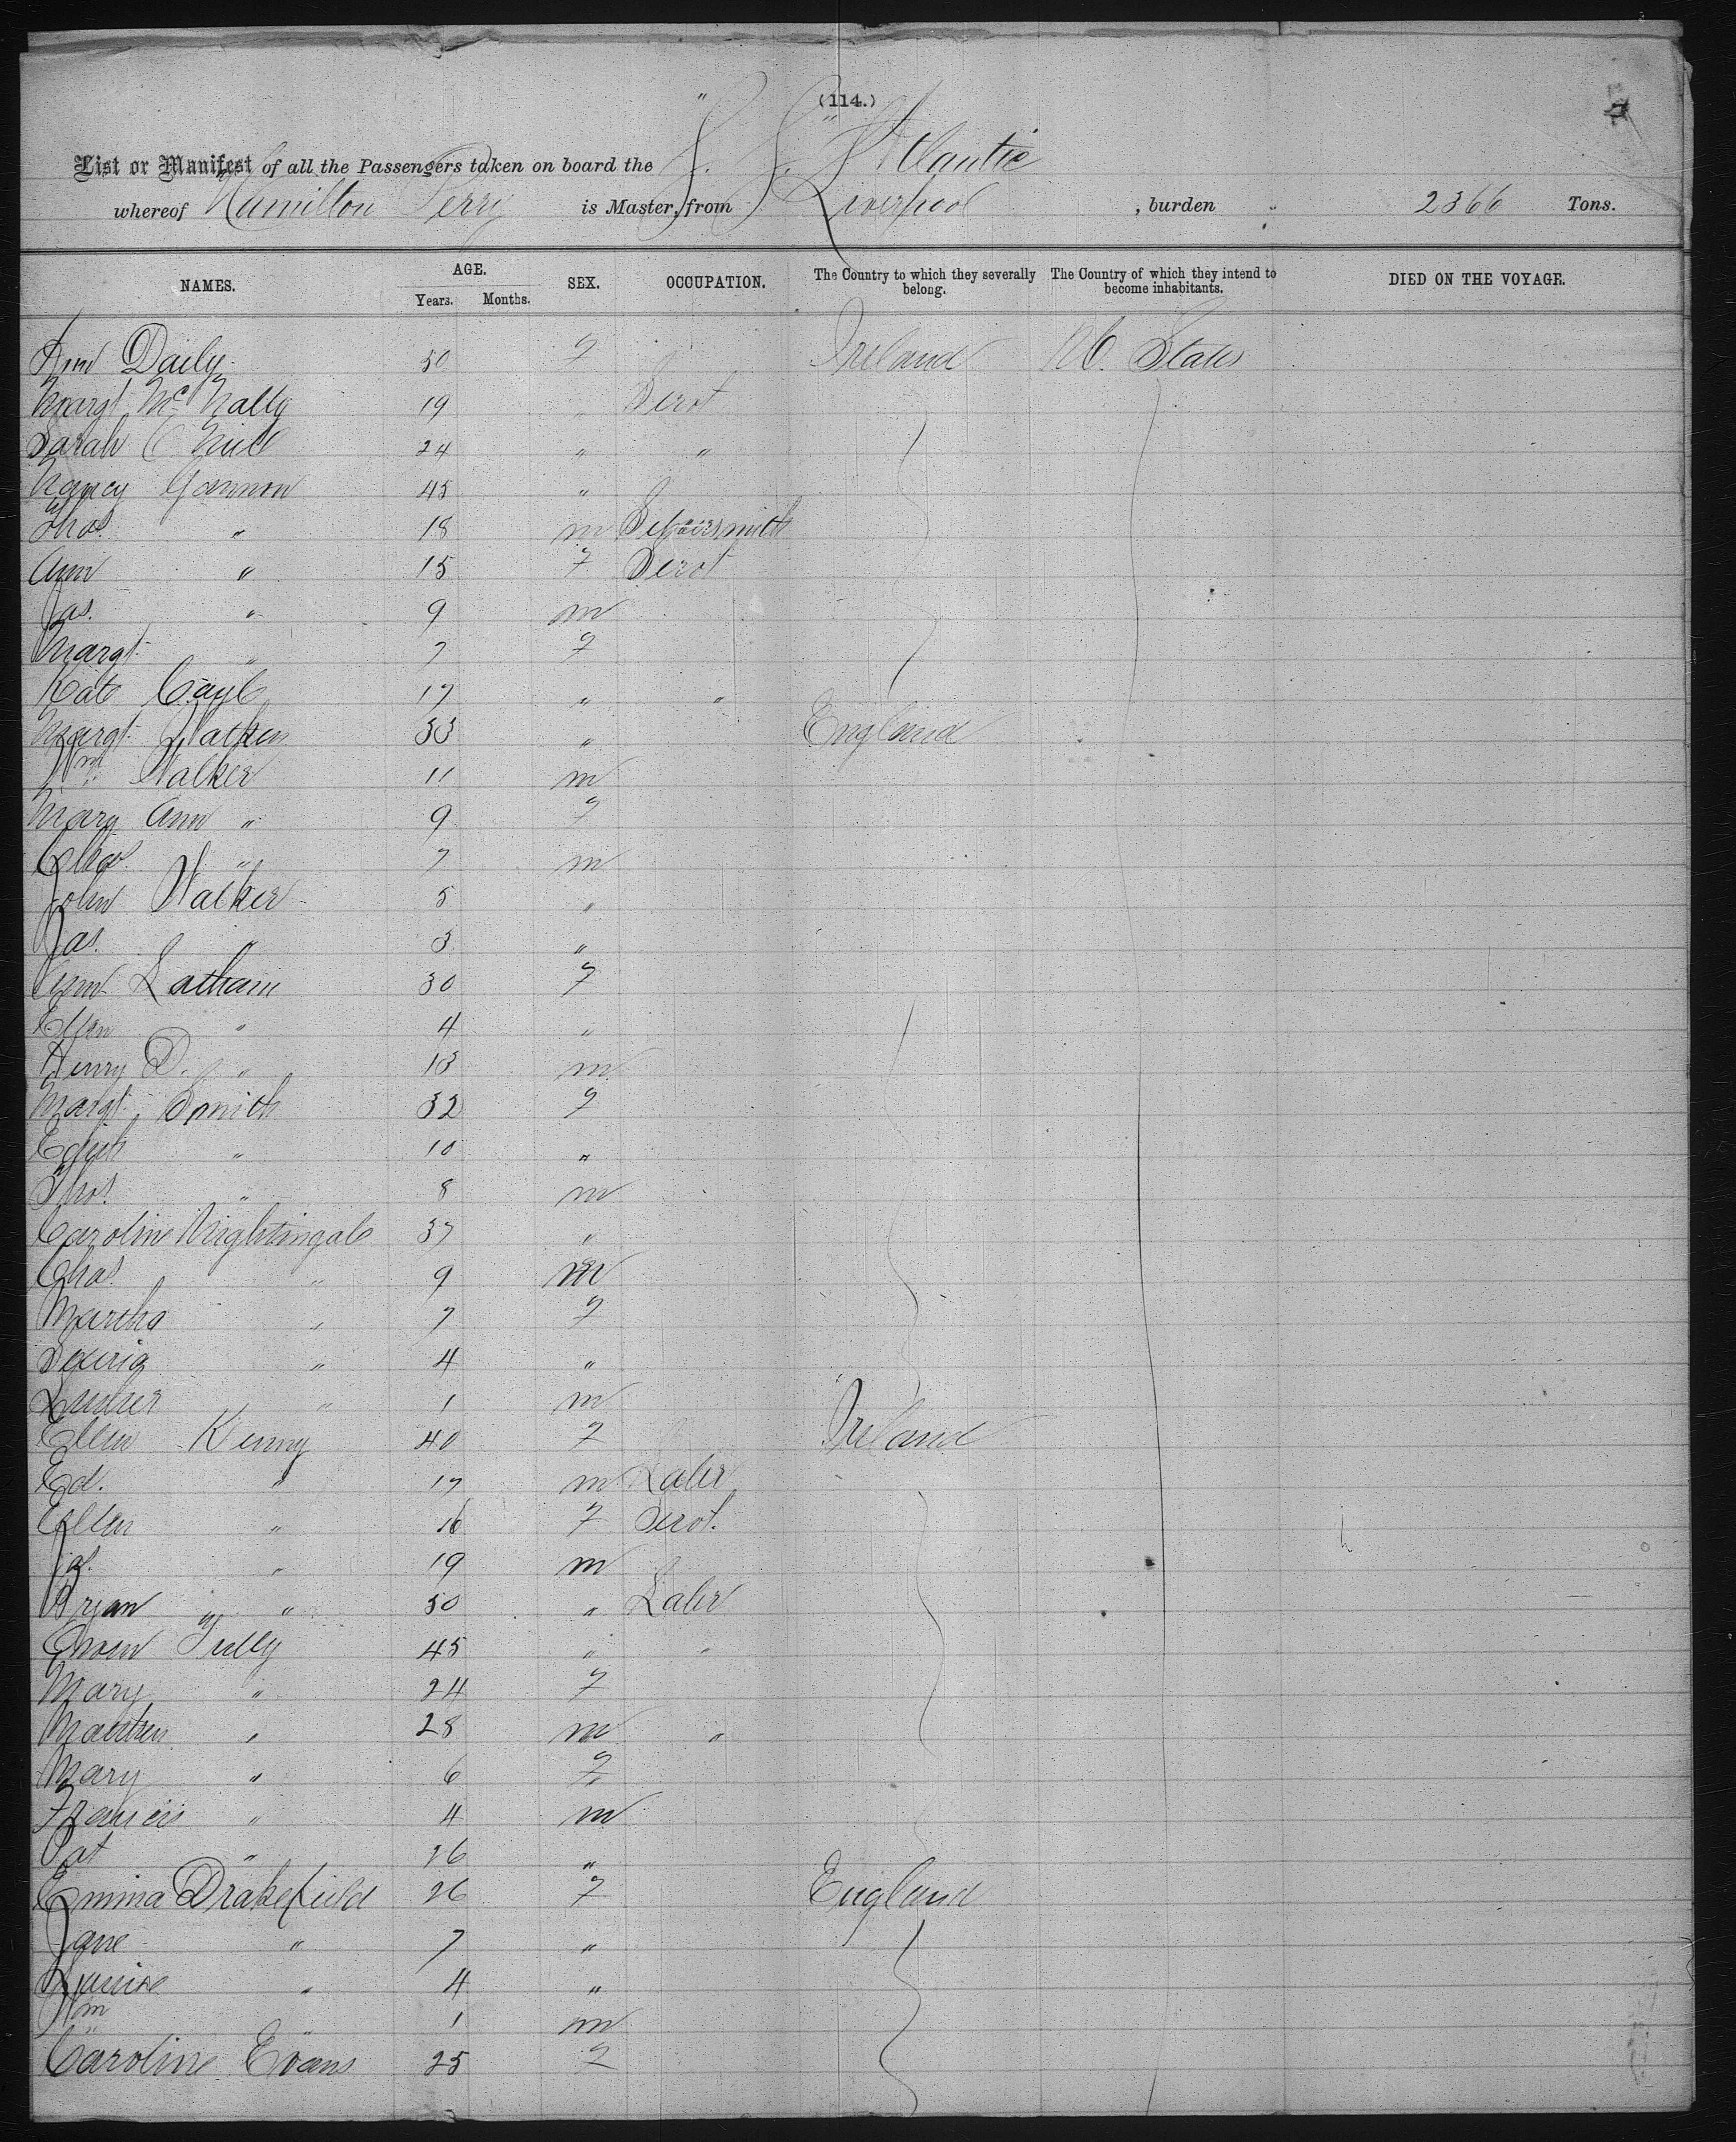 (114.)
List or Manifest of all the Passengers taken on board the S. S. "Atlantic"
whereof Hamilton Perry is Master, from Liverpool , burden 2366 Tons.
NAMES. AGE. Years. Months. SEX. OCCUPATION. The Country to which they severally belong. The Country of which they intend to become inhabitants. DIED ON THE VOYAGE.
Ann Daily 50 F Ireland U. States
Margt. McNally 19 " Servt
Sarah O'Neill 24 " "
Nancy Gannon 45 "
Thos. " 18 m
Ann " 15 F Servt
Jas. " 9 m
Margt. " 7 F
Kate 17 " "
Margt. 33 " England
Wm. Walker 11 m
Mary Ann " 9 F
Chas. " 7 m
John Walker 5 "
Jas. " 3 "
Ann Latham 30 F
Ellen " 4 "
Henry D. " 13 m
Margt. Smith 32 F
Edith " 10 "
Thos. " 8 m
Caroline Nightingale 37 "
Chas. " 9 m
Martha " 7 F
" 4 "
" 1 m
Ellen Kenny 40 F Ireland
Ed. " 17 m Labr
Ellen " 16 F Servt.
Jas. " 19 m
Bryan " 50 " Labr
Owen Tully 45 " "
Mary " 24 F
Matthew " 28 m "
Mary " 6 F
Francis " 4 m
Pat " 26 "
Emma Drakefield 26 F England
Jane " 7 "
Louise " 4 "
Wm " 1 m
Caroline Evans 25 F